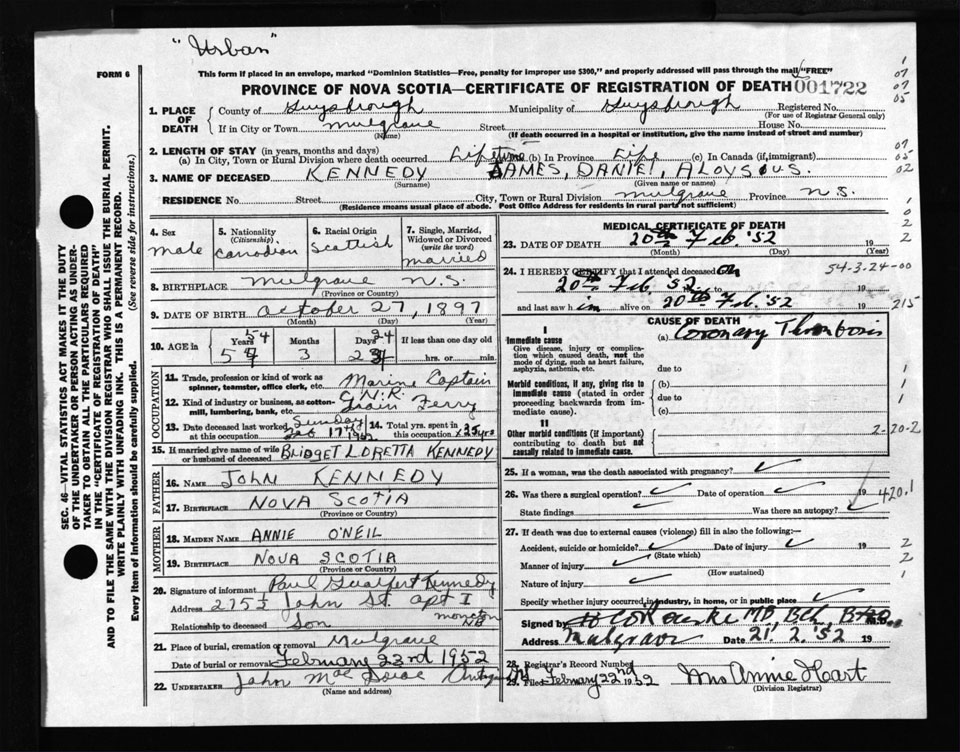 "Urban"
FORM 6
This form if placed in an envelope, marked "Dominion Statistics—Free, penalty for improper use $300," and properly addressed will pass through the mail "FREE"
PROVINCE OF NOVA SCOTIA—CERTIFICATE OF REGISTRATION OF DEATH 001722
1. PLACE OF DEATH County of Guysbrough Municipality of Guysbrough Registered No.
(For use of Registrar General only)
If in City or Town Mulgrave Street House No.
(Name) (If death occurred in a hospital or institution, give the name instead of street and number)
2. LENGTH OF STAY (in years, months and days)
(a) In City, Town or Rural Division where death occurred Lifetime (b) In Province Life (c) In Canada (if immigrant)
3. NAME OF DECEASED KENNEDY JAMES, DANIEL, ALOYSOUS.
(Surname) (Given name or names)
RESIDENCE No. Street City, Town or Rural Division Mulgrave Province N.S.
(Residence means usual place of abode. Post Office Address for residents in rural parts not sufficient)
4. Sex male
5. Nationality (Citizenship) Canadian
6. Racial Origin Scottish
7. Single, Married, Widowed or Divorced (write the word) married
8. BIRTHPLACE Mulgrave N.S.
(Province or Country)
9. DATE OF BIRTH October 27, 1897
(Month) (Day) (Year)
10. AGE in Years 54 Months 3 Days 24 If less than one day old
hrs. or min.
OCCUPATION
11. Trade, profession or kind of work as spinner, teamster, office clerk, etc. Marine Captain
12. Kind of industry or business, as cotton-mill, lumbering, bank, etc. C.N.R. Train Ferry
13. Date deceased last worked at this occupation Sunday Feb 17th 1952
14. Total yrs. spent in this occupation 35 yrs
15. If married give name of wife or husband of deceased BRIDGET LORETTA KENNEDY
FATHER
16. NAME JOHN KENNEDY
17. BIRTHPLACE NOVA SCOTIA
(Province or Country)
MOTHER
18. MAIDEN NAME ANNIE O'NEIL
19. BIRTHPLACE NOVA SCOTIA
(Province or Country)
20. Signature of informant Paul Kennedy
Address 275½ John St. apt I Moncton NB
Relationship to deceased Son
21. Place of burial, cremation or removal Mulgrave
Date of burial or removal February 23rd 1952
22. UNDERTAKER John Mac
(Name and address)
MEDICAL CERTIFICATE OF DEATH
23. DATE OF DEATH 20th Feb. '52 19
(Month) (Day) (Year)
54-3-24-00
24. I HEREBY CERTIFY that I attended deceased on
20th Feb. '52 to 19
and last saw him alive on 20th Feb. '52 19
215
CAUSE OF DEATH
I
Immediate cause
Give disease, injury or complication which caused death, not the mode of dying, such as heart failure, asphyxia, asthenia, etc.
(a) Coronary Thrombosis
due to
Morbid conditions, if any, giving rise to immediate cause (stated in order proceeding backwards from immediate cause).
(b)
due to
(c)
II
Other morbid conditions (if important) contributing to death but not causally related to immediate cause.
2-20-2
25. If a woman, was the death associated with pregnancy?
26. Was there a surgical operation? Date of operation 19
420.1
State findings Was there an autopsy?
27. If death was due to external causes (violence) fill in also the following:
Accident, suicide or homicide? Date of injury 19
(State which)
Manner of injury
(How sustained)
Nature of injury
Specify whether injury occurred in industry, in home, or in public place
Signed by MB, BCh,
Address Mulgrave Date 21. 2. '52 19
28. Registrar's Record Number
29. Filed February 22nd 1952 Mrs Annie Hart
(Division Registrar)
SEC. 46—VITAL STATISTICS ACT MAKES IT THE DUTY OF THE UNDERTAKER OR PERSON ACTING AS UNDERTAKER TO OBTAIN ALL THE PARTICULARS REQUIRED IN THE "CERTIFICATE OF REGISTRATION OF DEATH" AND TO FILE THE SAME WITH THE DIVISION REGISTRAR WHO SHALL ISSUE THE BURIAL PERMIT.
WRITE PLAINLY WITH UNFADING INK. THIS IS A PERMANENT RECORD.
Every item of information should be carefully supplied. (See reverse side for instructions.)